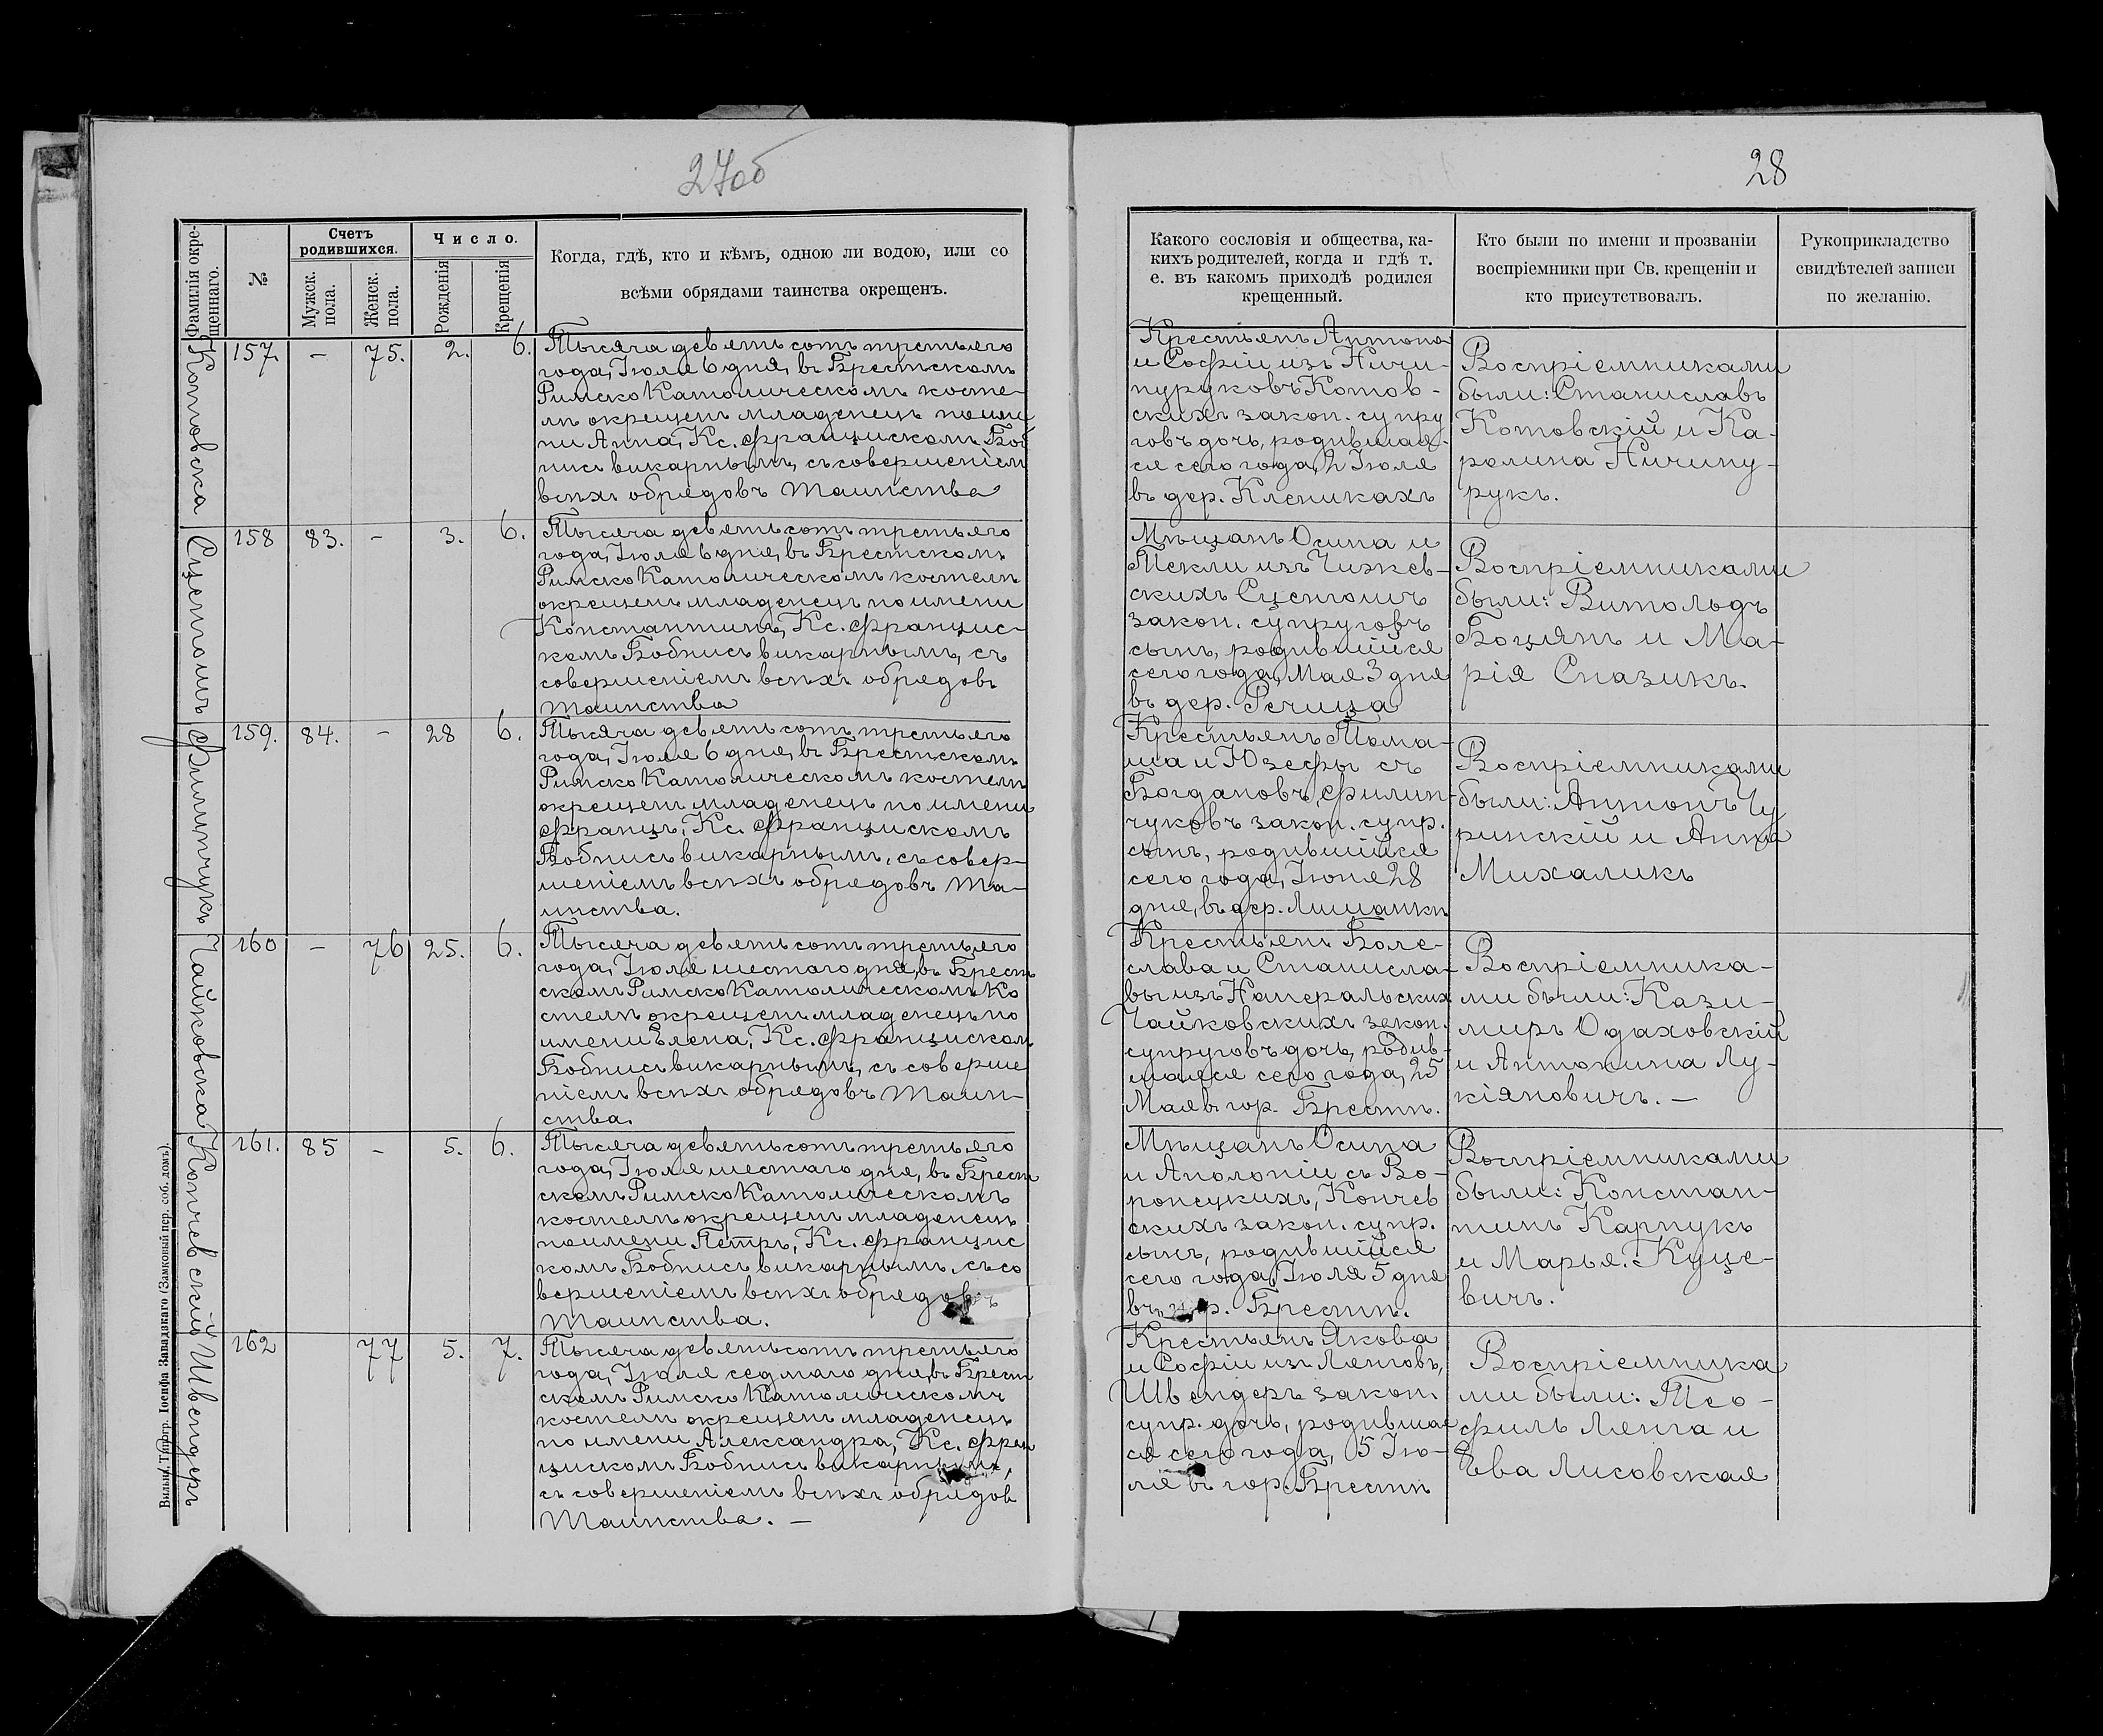 27об
28
Фамилія окре-
щеннаго.
№
Счетъ
родившихся.
Мужск.
пола.
Женск.
пола.
Число.
Рожденія
Крещенія
Когда, гдѣ, кто и кѣмъ, одною ли водою, или со
всѣми обрядами таинства окрещенъ.
Какого сословія и общества, ка-
кихъ родителей, когда и гдѣ т.
е. въ какомъ приходѣ родился
крещенный.
Кто были по имени и прозваніи
воспріемники при Св. крещеніи и
кто присутствовалъ.
Рукоприкладство
свидѣтелей записи
по желанію.
Котовска
157. – 75. 2. 6.
Тысяча девятьсотъ третьяго
года, Іюля 6 дня, въ Брестскомъ
Римско Католическомъ косте-
лѣ окрещенъ младенецъ по име
ни Анна, Кс. Францискомъ Боб
нисъ викарнымъ, съ совершеніем
всѣхъ обрядовъ Таинства
Крестьянъ Антона
и Софіи изъ Ничи-
пуруковъ Котов-
скихъ закон. супру
говъ дочь, родившая-
ся сего года, 2 Іюля
въ дер. Клепикахъ
Воспріемниками
были: Станиславъ
Котовскій и Ка-
ролина Ничипу-
рукъ.
Сцепгоичъ
158 83. - 3. 6.
Тысяча девятьсотъ третьяго
года, Іюля 6 дня, въ Брестскомъ
Римско Католическомъ костелѣ
окрещенъ младенецъ по имени
Константинъ, Кс. Францис-
комъ Бобнисъ викарнымъ, съ
совершеніемъ всѣхъ обрядовъ
Таинства
Мѣщанъ Осипа и
Теклы изъ Чижев-
скихъ
закон. супруговъ
сынъ, родившійся
сего года, Мая 3 дня
въ дер. Речица
Воспріемниками
были: Витольдъ
Боцянъ и Ма-
рія Сназикъ.
Филипчукъ
159. 84. - 28 6.
Тысяча девятьсотъ третьяго
года, Іюля 6 дня, въ Брестскомъ
Римско Католическомъ костелѣ
окрещенъ младенецъ по имени
Францъ, Кс. Францискомъ
Бобнисъ викарнымъ, съ совер-
шеніемъ всѣхъ обрядовъ Та-
инства.
Крестьянъ Тома-
ша и Юзефы съ
Богдановъ, Филип-
чуковъ закон. супр.
сынъ, родившійся
сего года, Іюня 28
дня, въ дер.
Воспріемниками
были: Антонъ Чу
ринскій и Анна
Михаликъ
Чайковска
160 – 76 25. 6.
Тысяча девятьсотъ третьяго
года, Іюля шестого дня, въ Брест
скомъ Римско Католическомъ Ко
стелѣ окрещенъ младенецъ по
имени Елена, Кс. Францискомъ
Бобнисъ викарнымъ, съ соверше
ніемъ всѣхъ обрядовъ Таин-
ства.
Крестьянъ Боле-
слава и Станисла-
вы изъ Наперальских
Чайковскихъ закон.
супруговъ дочь, родив-
шаяся сего года, 25
Мая въ гор. Брестѣ.
Воспріемника-
ми были: Кази-
миръ Одаховскій
и Антонина Лу-
кіяновичъ. –
Кончевскій
161. 85 - 5. 6.
Тысяча девятьсотъ третьяго
года, Іюля шестаго дня, въ Брест
скомъ Римско Католическомъ
костелѣ окрещенъ младенецъ
по имени Петръ, Кс. Францис
комъ Бобнисъ викарнымъ, съ со
вершеніемъ всѣхъ обрядовъ
Таинства.
Мѣщанъ Осипа
и Аполоніи съ Во-
ронецкихъ, Кончев
скихъ закон. супр.
сынъ, родившійся
сего года, Іюля 5 дня
въ гор. Брестѣ.
Воспріемниками
были: Констан-
тинъ Карпукъ
и Марья Куце-
вичъ.
Швендеръ
162 77 5. 7.
Тысяча девятьсотъ третьяго
года, Іюля седмаго дня, въ Брест
скомъ Римско Католическомъ
костелѣ окрещенъ младенецъ
по имени Александра, Кс. Фран
цискомъ Бобнисъ викарнымъ,
съ совершеніемъ всѣхъ обрядов
Таинства. –
Крестьянъ Якова
и Софіи изъ Ленговъ,
Швендеръ закон.
супр. дочь, родившая
ся сего года, 5 Ію-
ля въ гор. Брестѣ
Воспріемника
ми были: Тео-
филь Ленга и
Ева Лисовская
Вильна, Типогр. Іосифа Завадзкаго (Замковый пер. соб. домъ).